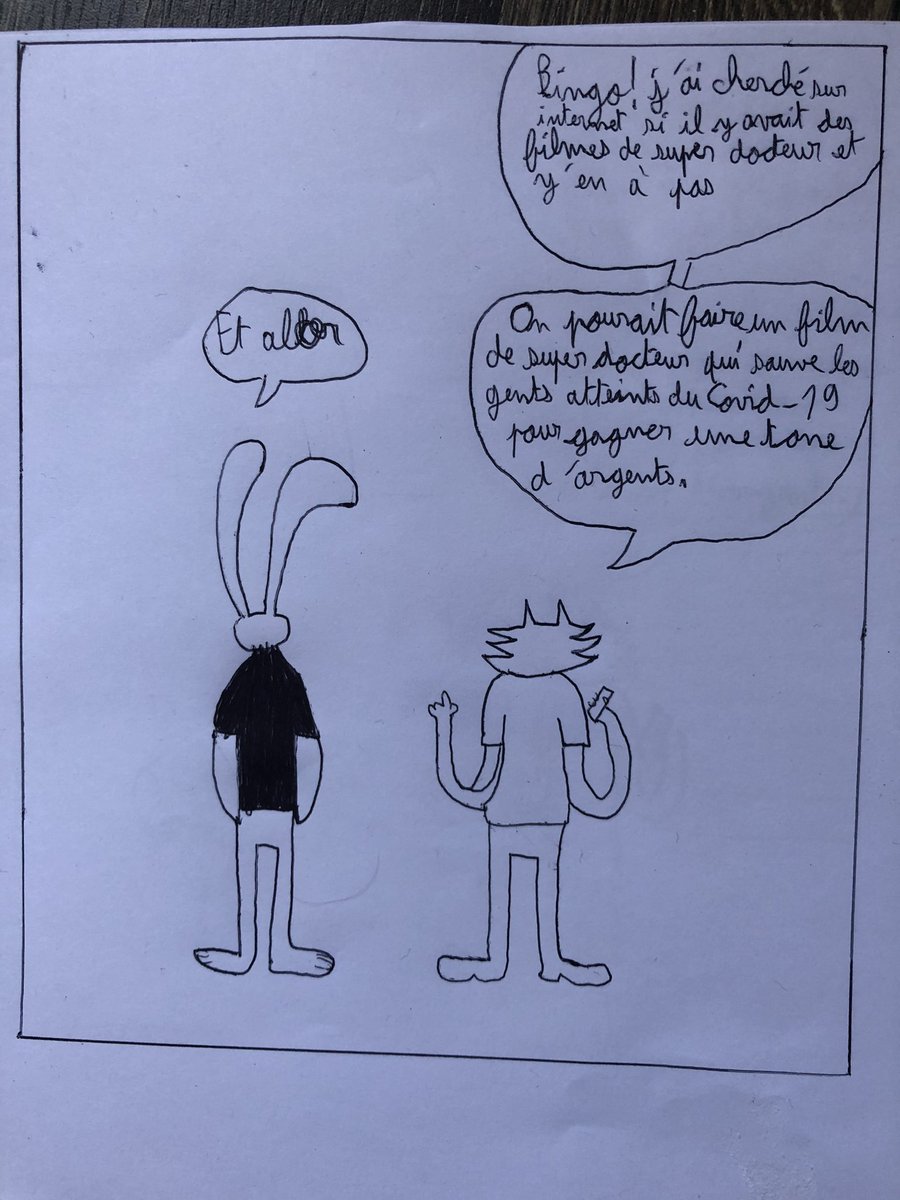 Bingo! j'ai cherché sur
internet si il y avait des
filmes de super docteur et
y'en à pas
Et allor
On pourait faire un film
de super docteur qui sauve les
gents atteints du Covid-19
pour gagner une tone
d'argents.